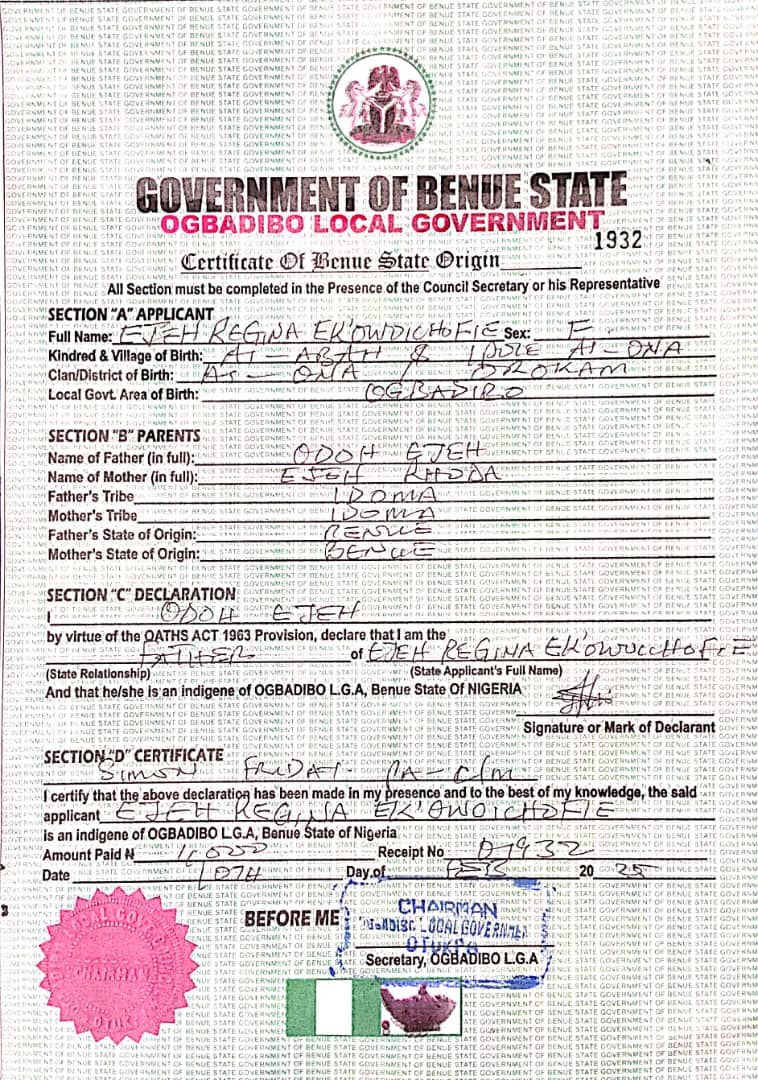 GOVERNMENT OF BENUE STATE
OGBADIBO LOCAL GOVERNMENT
1932
Certificate Of Benue State Origin
All Section must be completed in the Presence of the Council Secretary or his Representative
SECTION "A" APPLICANT
Full Name: EJEH REGINA EK'OWOICHOFIE Sex: F
Kindred & Village of Birth: AI-ABAH & IPOLE AI-ONA
Clan/District of Birth: AI-ONA / OROKAM
Local Govt. Area of Birth: OGBADIBO
SECTION "B" PARENTS
Name of Father (in full): ODOH EJEH
Name of Mother (in full): EJEH RHODA
Father's Tribe IDOMA
Mother's Tribe IDOMA
Father's State of Origin: BENUE
Mother's State of Origin: BENUE
SECTION "C" DECLARATION
I ODOH EJEH
by virtue of the OATHS ACT 1963 Provision, declare that I am the
FATHER of EJEH REGINA
(State Relationship) (State Applicant's Full Name)
And that he/she is an indigene of OGBADIBO L.G.A, Benue State Of NIGERIA
Signature or Mark of Declarant
SECTION "D" CERTIFICATE
SIMON FRIDAY PA-C/M
I certify that the above declaration has been made in my presence and to the best of my knowledge, the said
applicant EJEH REGINA EK'OWOICHOFIE
is an indigene of OGBADIBO L.G.A, Benue State of Nigeria
Amount Paid N Receipt No 01932
Date 10TH Day of FEB 20 25
BEFORE ME
CHAIRMAN
OGBADIBO LOCAL GOVERNMENT
OTUKPA
Secretary, OGBADIBO L.G.A
CHAIRMAN